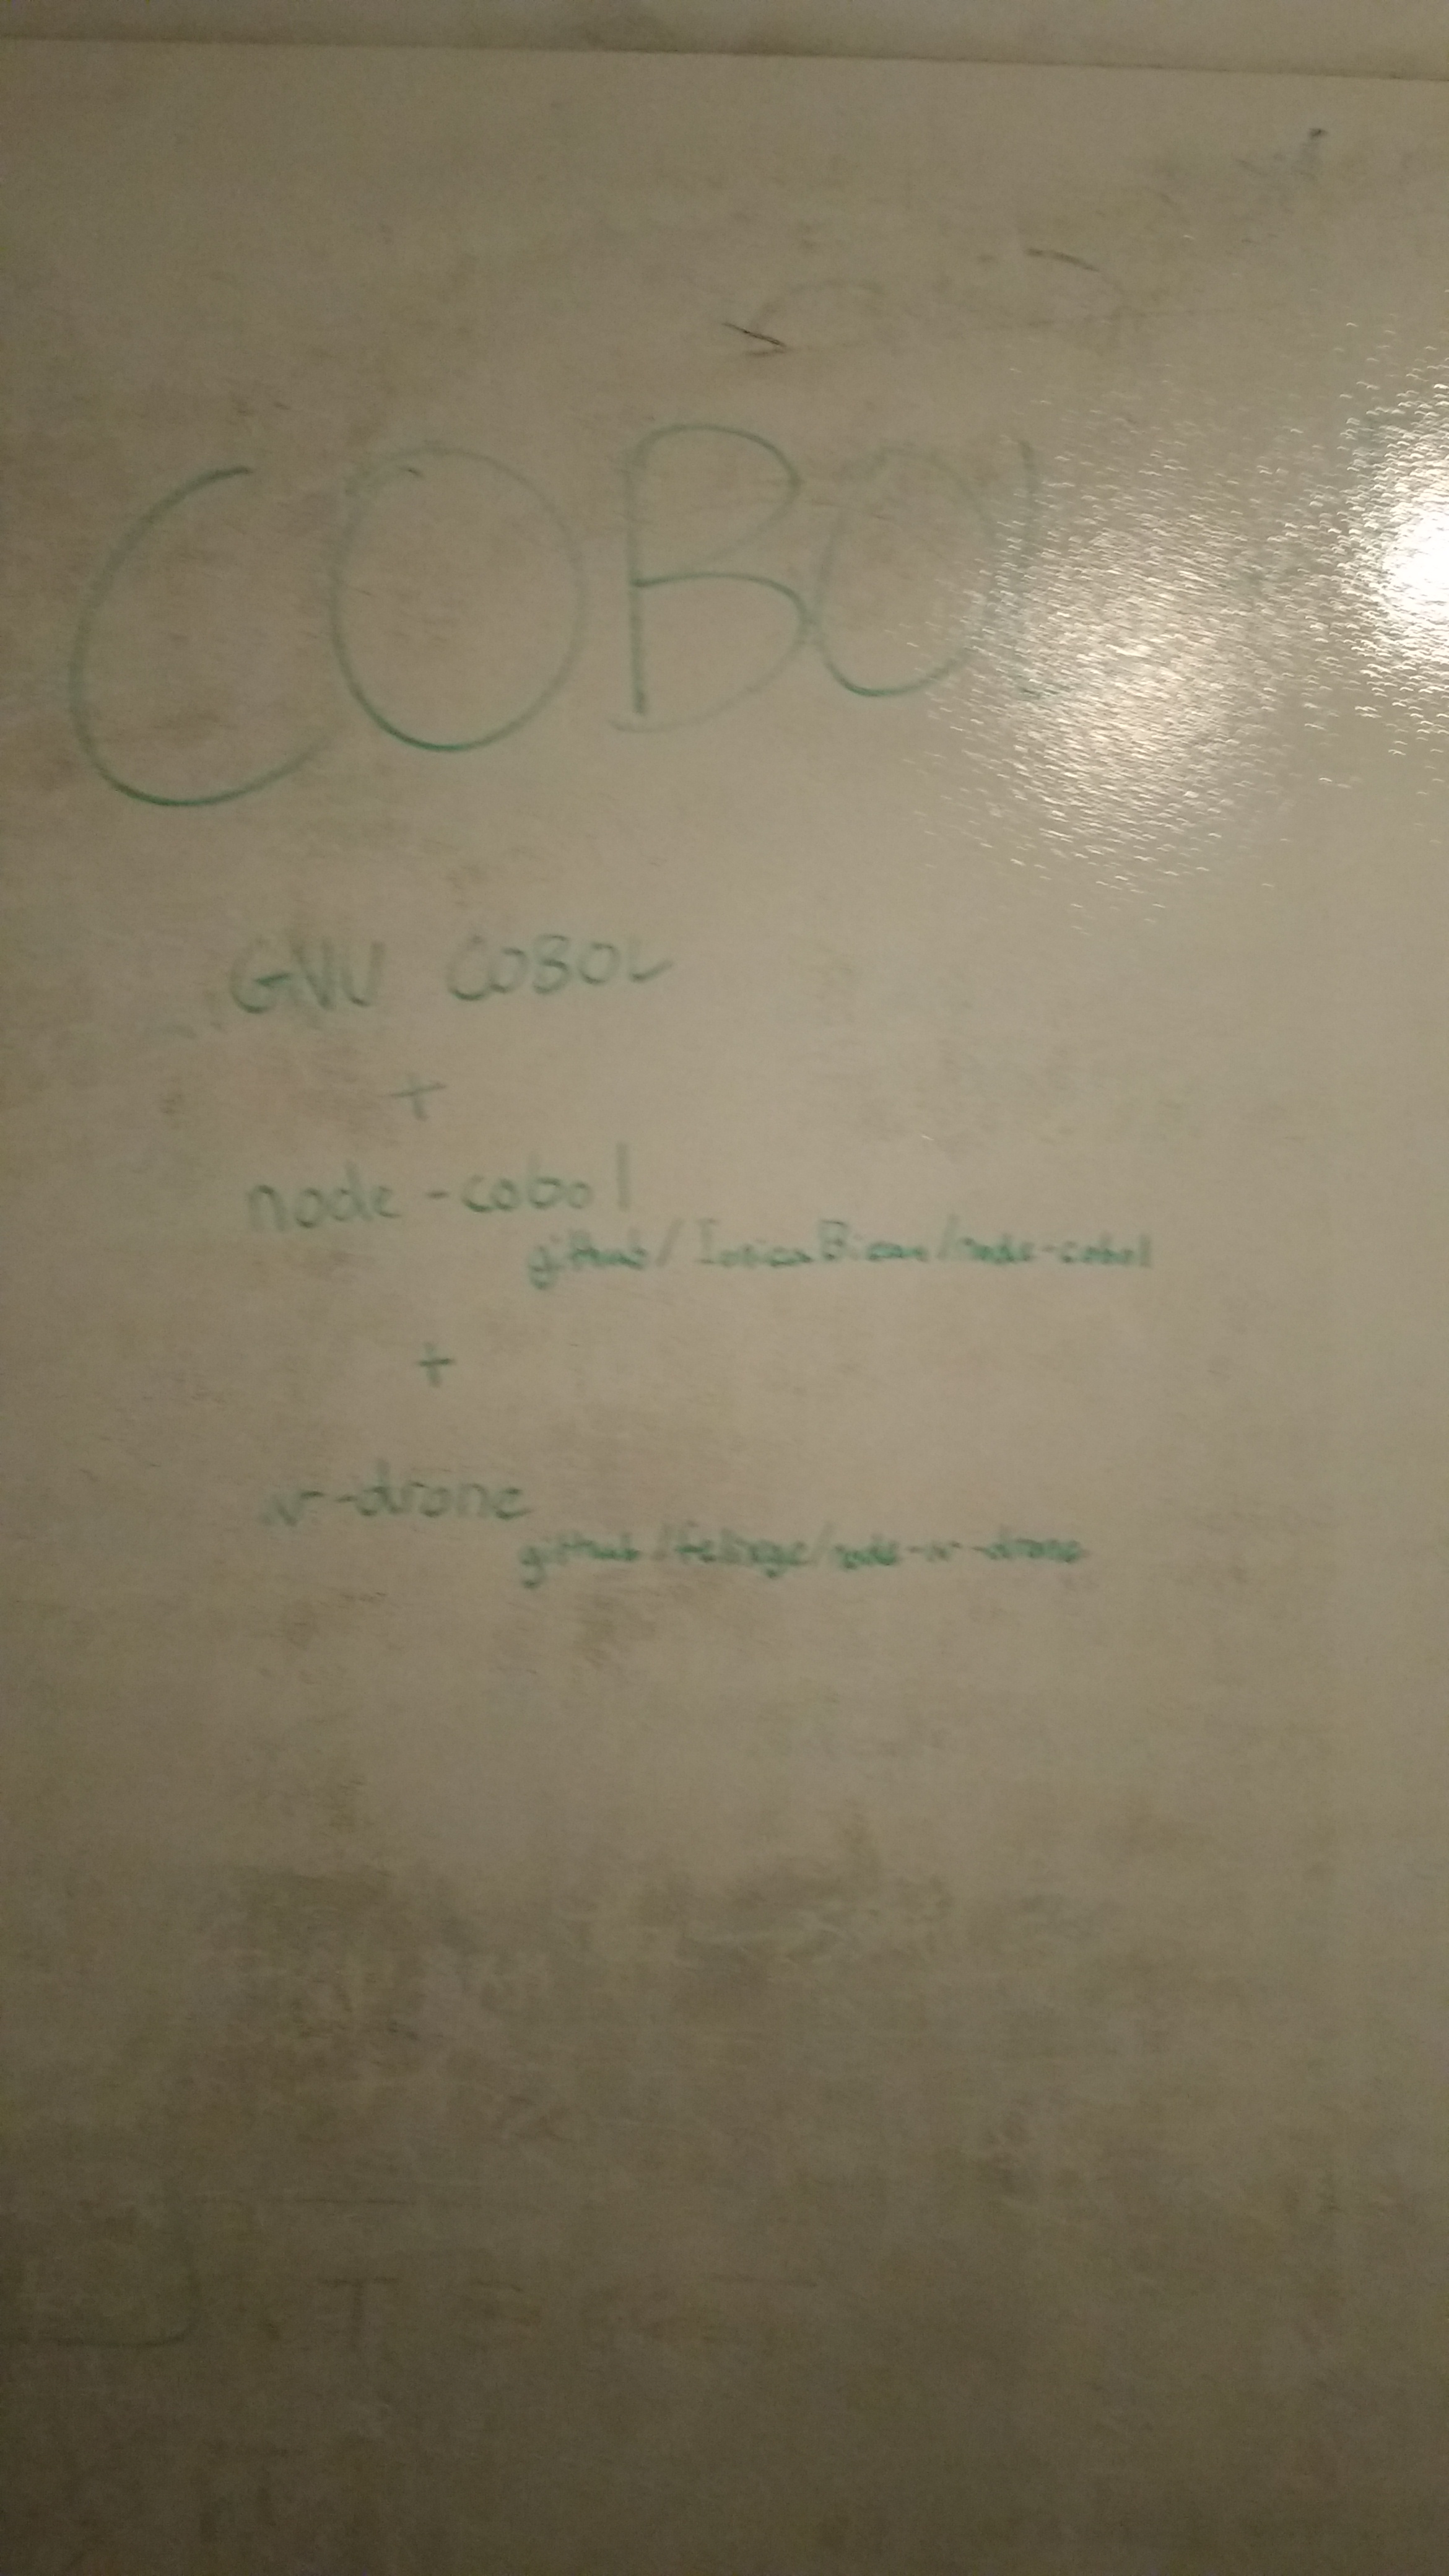 COBOL
GNU COBOL
+
node-cobol
github/IonicaBizau/node-cobol
+
ar-drone
github/felixge/node-ar-drone